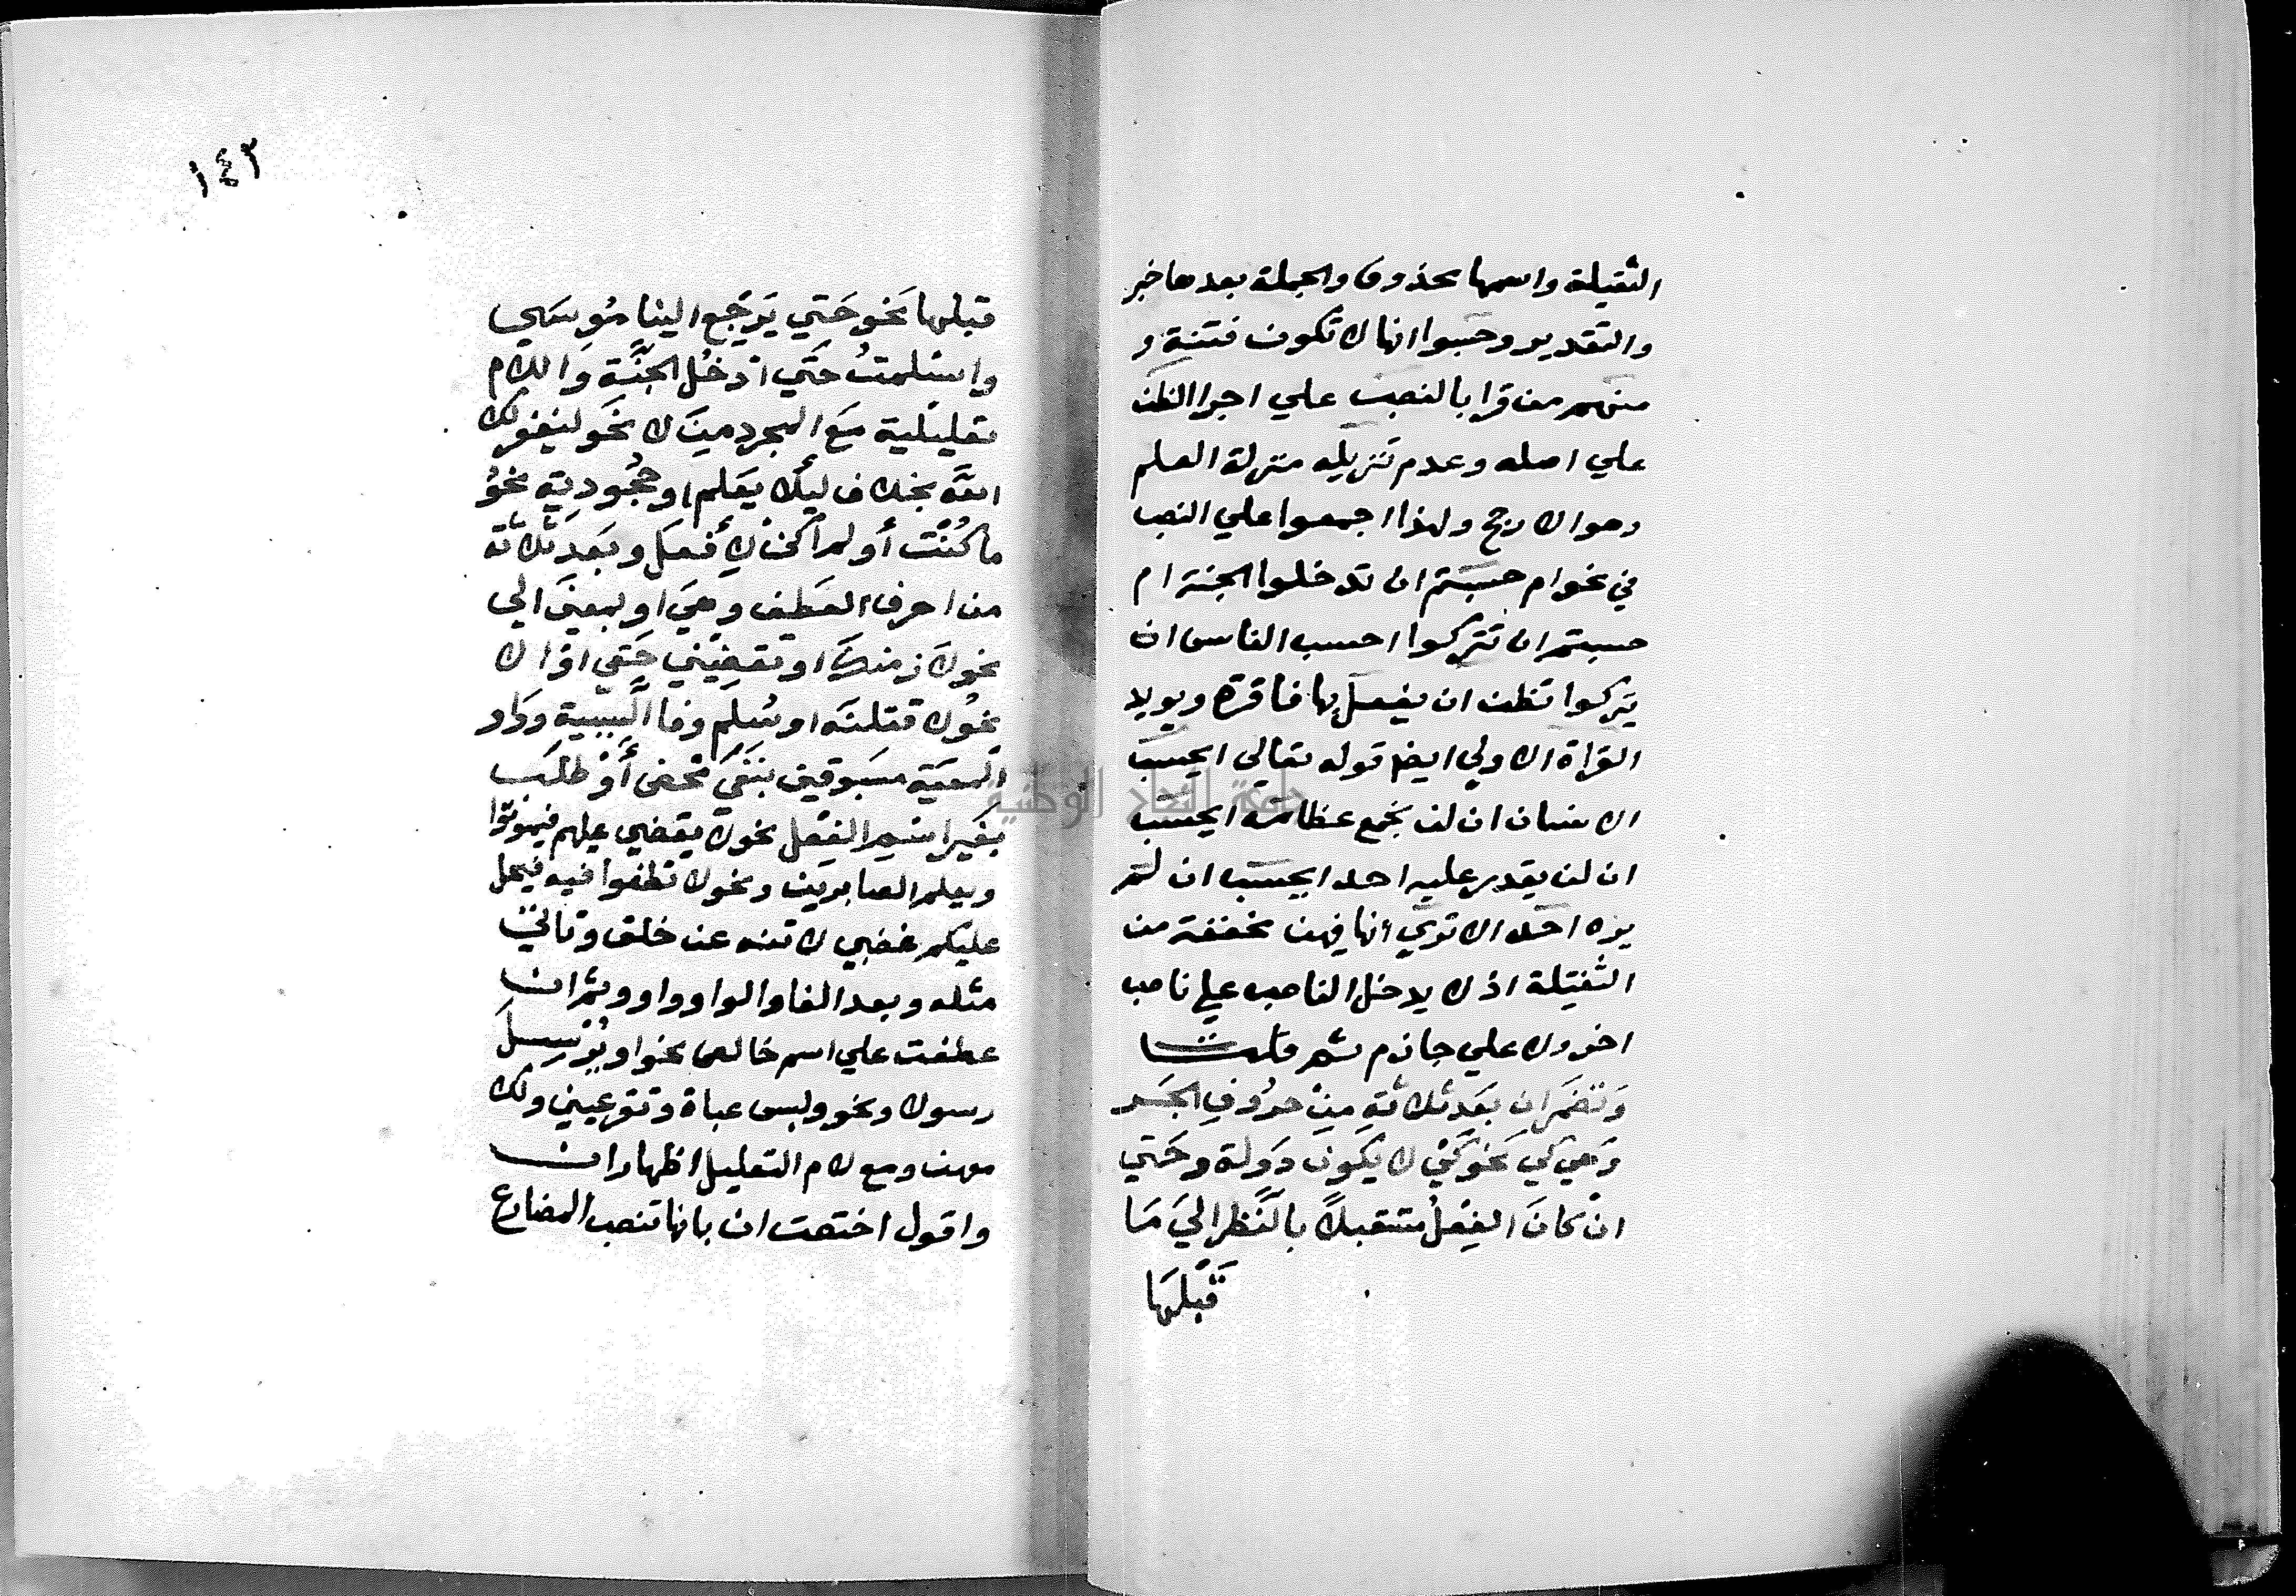 الثقيلة واسمها محذوف والجملة بعدها خبر
والتقدير وحسبوا انها لا تكون فتنة و
منهم من قرا بالنصب علي اجرا الظن
علي اصله وعدم تنزيله منزلة العلم
وهو الارجح ولهذا اجمعوا علي النصب
في نحو ام حسبتم ان تدخلوا الجنة ام
حسبتم ان تتركوا احسب الناس ان
يتركوا تظن ان يفعل بها فاقرة ويويد
القراة الاولي ايضا قوله تعالى ايحسب
الانسان ان لن نجمع عظامه ايحسب
ان لن يقدر عليه احد ايحسب ان لم
يره احد الا تري انها فيهن مخففة من
الثقيلة اذ لا يدخل الناصب علي ناصب
اخر ولا علي جازم ثم قلت
وَتضمَر ان بَعدَ ثلاثة مِنْ حرُوفِ الجَر
وَهي كي نَحو كَيْ لا يكونَ دَولة وحَتي
انْ كانَ الفِعْلُ مستقبلاً بالنَّظر اليَ مَا
قَبْلهَا
١٤٢
قبلها نَحو حَتي يَرْجع الينا مُوسَي
واسْلمتُ حَتي ادخُل الجنَّة وَاللام
تعليلية مَع المجرد مِنَ لا نحَو ليغفر لك
الله بخلاف ليلا يَعلم او جُحُودية نحوُ
ما كُنْت أو لم أكن لِأفعَل وبَعدَ ثلاثة
من احرف العَطف وهيَ او بمعنَي الي
نحو لالزمنك او تقضيَني حَتي او الا
نحوُ لاقتلنه او يُسلِم وفا السَّببية وواو
المعيَّة مسَبوقين بنَفي محض أوْ طلَب
بغَير اسم الفِعْل نحو لا يقضي عليهم فيموتوا
ويعلم الصابرين ونحو لا تطغوا فيه فيحل
عليكم غضبي لا تنه عن خلق وتاتيَ
مثله وبعد الفا والواو واو وثم ان
عطفت علي اسم خالص نحو او يُرْسِلَ
رسولا ونحو ولبس عباة وتقر عيني ولك
معهن ومع لام التعليل اظهار ان
واقول اختصت ان بانها تنصب المضارع
جامعة النجاح الوطنية